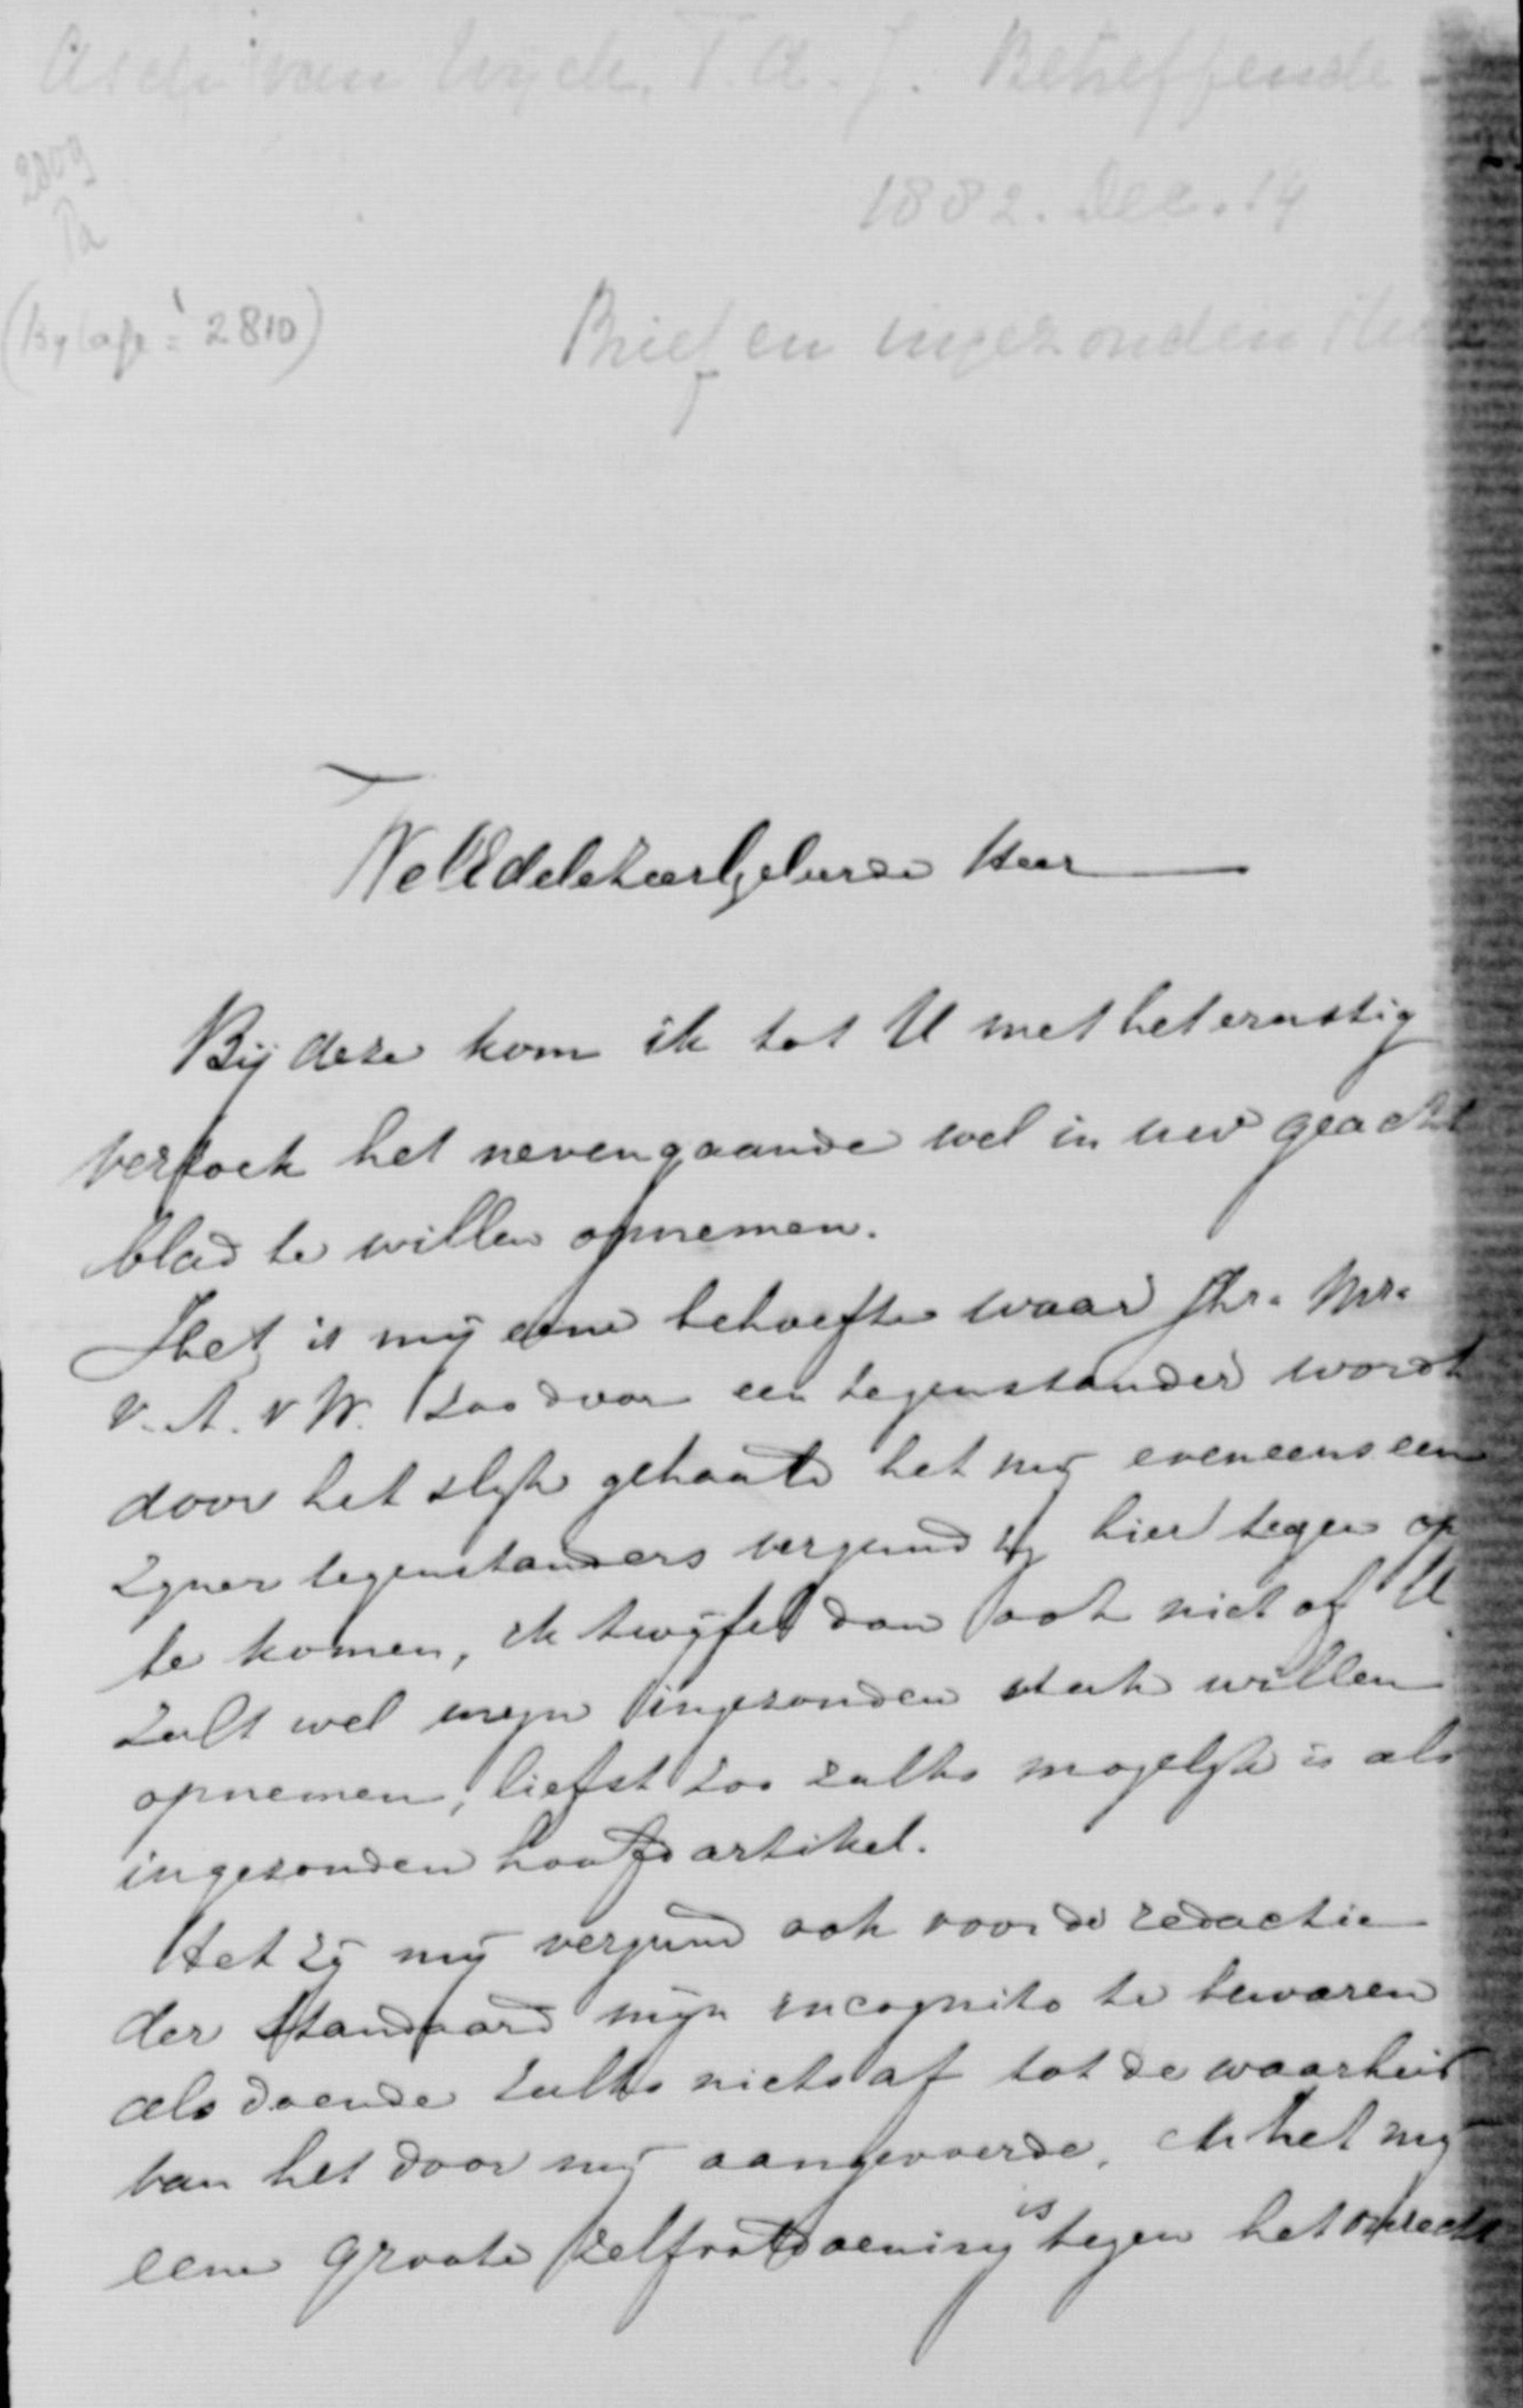 Asch van Wyck, T. A. J. Betreffende
2809
Pa
1882. Dec. 14
(Bylage: 2810)
Brief en ingezonden
WelEdeleZeerGeleerde Heer
Bij deze kom ik tot U met het ernstig
verzoek het nevengaande wel in uw geacht
blad te willen opnemen.
Het is mij eene behoefte waar Jhr. Mr.
v. A. v W. zoo door een tegenstander wordt
door het slijk gehaald het mij eveneens een
zyner tegenstanders vergund zij hier tegen op
te komen, ik twijfel dan ook niet of U
zult wel mijn ingezonden stuk willen
opnemen, liefst zoo zulks mogelijk is als
ingezonden hoofdartikel.
Het zij mij vergund ook voor de redactie
der Standaard mijn incognito te bewaren
als doende zulks niets af tot de waarheid
van het door mij aangevoerde, het mij
eene groote zelfvoldoening is tegen het onrecht